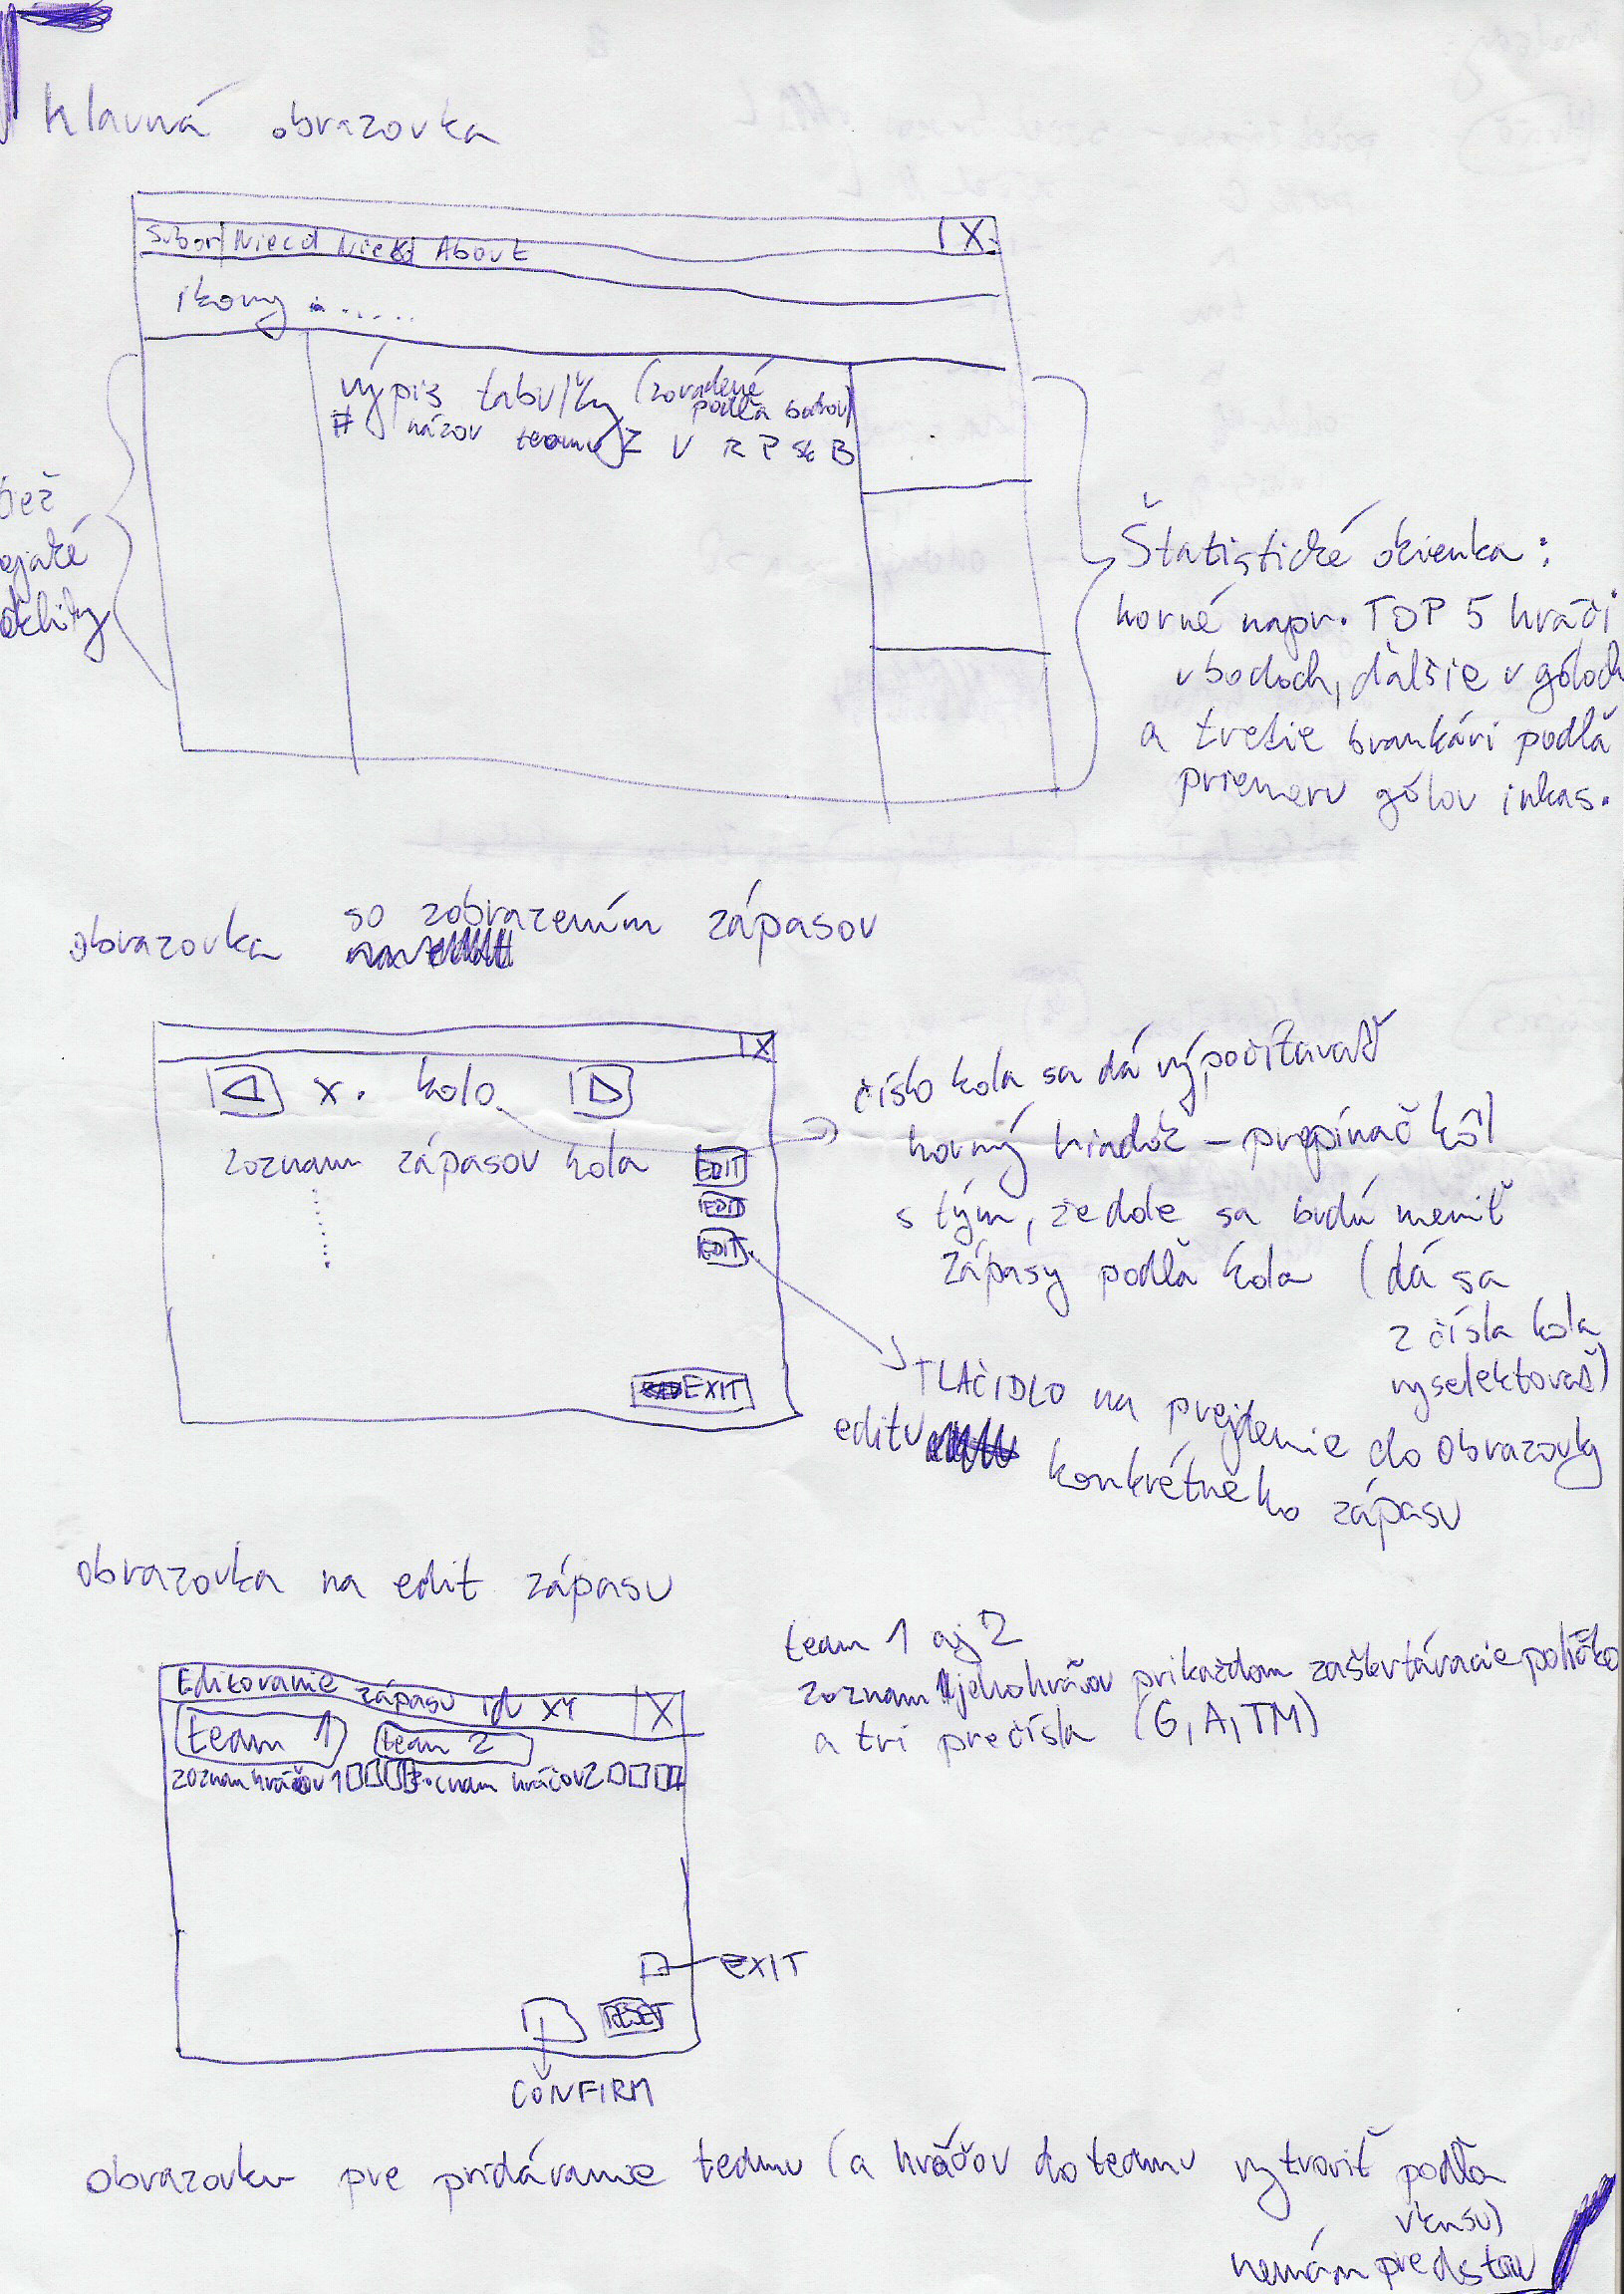 hlavná obrazovka
Subor Niečo About
X
ikony . . . . . .
výpis tabuľky (zoradené
podľa bodov)
# názov teamu Z V R P sk B
tiež
ejaké
Štatistické okienka:
horné napr. TOP 5 hráči
v bodoch, ďalšie v góloch
a tretie brankári podľa
priemeru gólov inkas.
so zobrazením zápasov
obrazovka
X
X. kolo
zoznam zápasov kola
EDIT
EDIT
EDIT
EXIT
číslo kola sa dá vypočítavať
horný riadok – prepínač kôl
s tým, že dole sa budú meniť
zápasy podľa kola (dá sa
z čísla kola
vyselektovať)
TLAČIDLO na prejdenie do obrazovky
editu konkrétneho zápasu
obrazovka na edit zápasu
Editovanie zápasu id XY
X
team 1 team 2
zoznam hráčov 1 zoznam hráčov 2
EXIT
RESET
CONFIRM
team 1 aj 2
zoznam jeho hráčov pri každom zaškrtávacie políčko
a tri pre čísla (G, A, TM)
obrazovku pre pridávanie teamu (a hráčov do teamu vytvoriť podľa
vkusu)
nemám predstavu